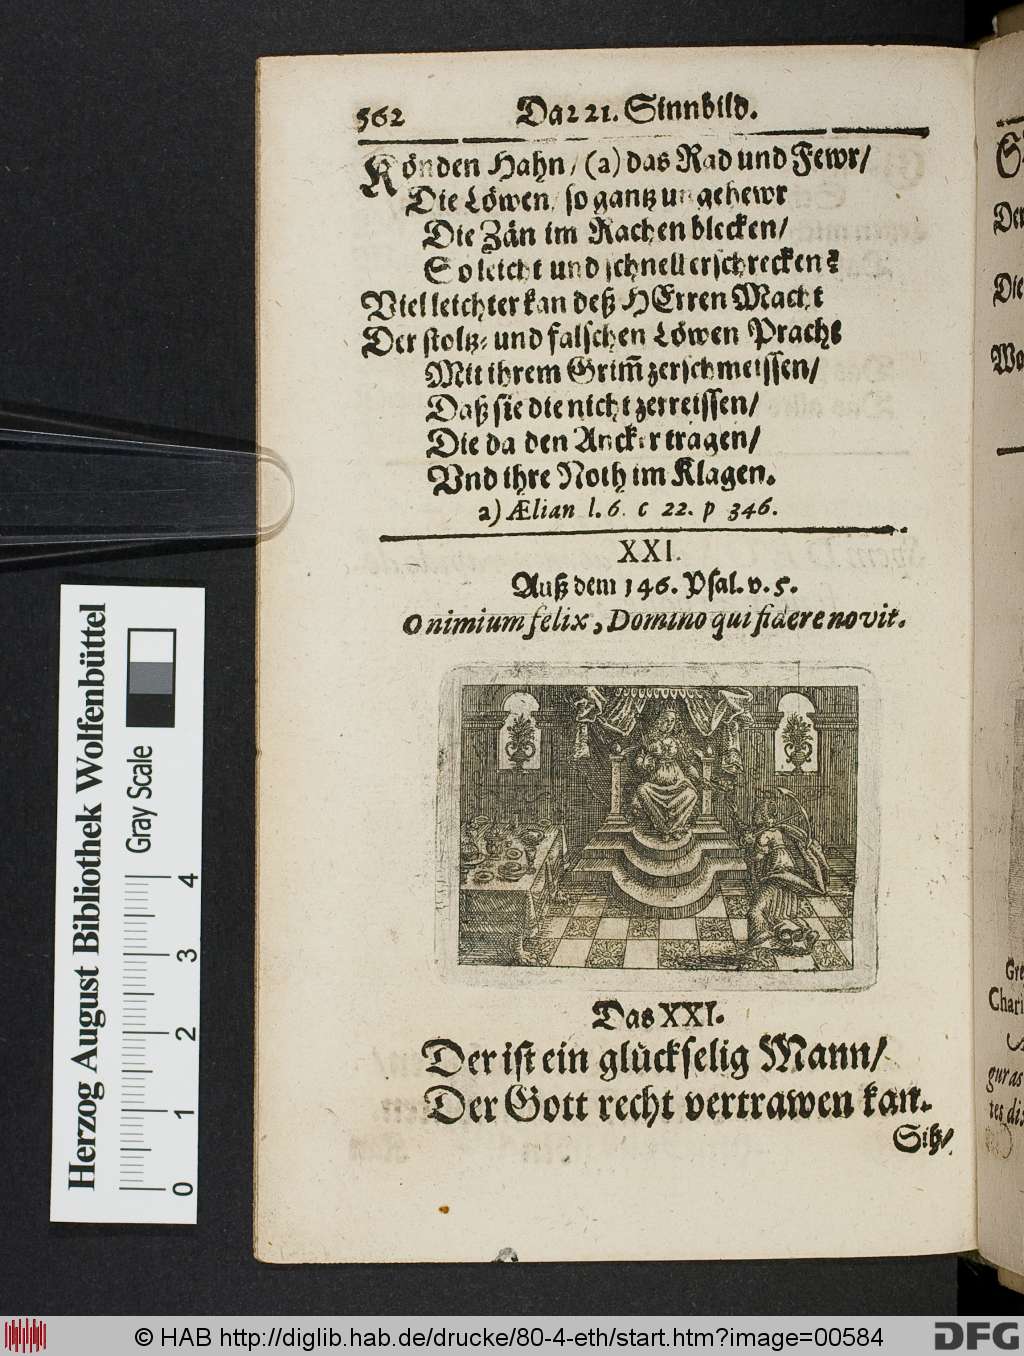 562 Das 21. Sinnbild.
Kön den Hahn/ (a) das Rad und Fewr/
Die Löwen/ so gantz ungehewr
Die Zän im Rachen blecken/
So leicht und schnell erschrecken?
Viel leichter kan deß HErren Macht
Der stoltz- und falschen Löwen Pracht
Mit ihrem Grim̄ zerschmeissen/
Daß sie die nicht zerreissen/
Die da den Ancker tragen/
Vnd ihre Noth im Klagen.
a) Ælian l. 6. c 22. p 346.
XXI.
Auß dem 146. Psal. v. 5.
O nimium felix, Domino qui fidere novit.
Das XXI.
Der ist ein glückselig Mann/
Der Gott recht vertrawen kan.
Sitz/
Den
Die
Gre
Charl
gur as
tes dis
Herzog August Bibliothek Wolfenbüttel
Gray Scale
0 1 2 3 4
© HAB http://diglib.hab.de/drucke/80-4-eth/start.htm?image=00584
DFG